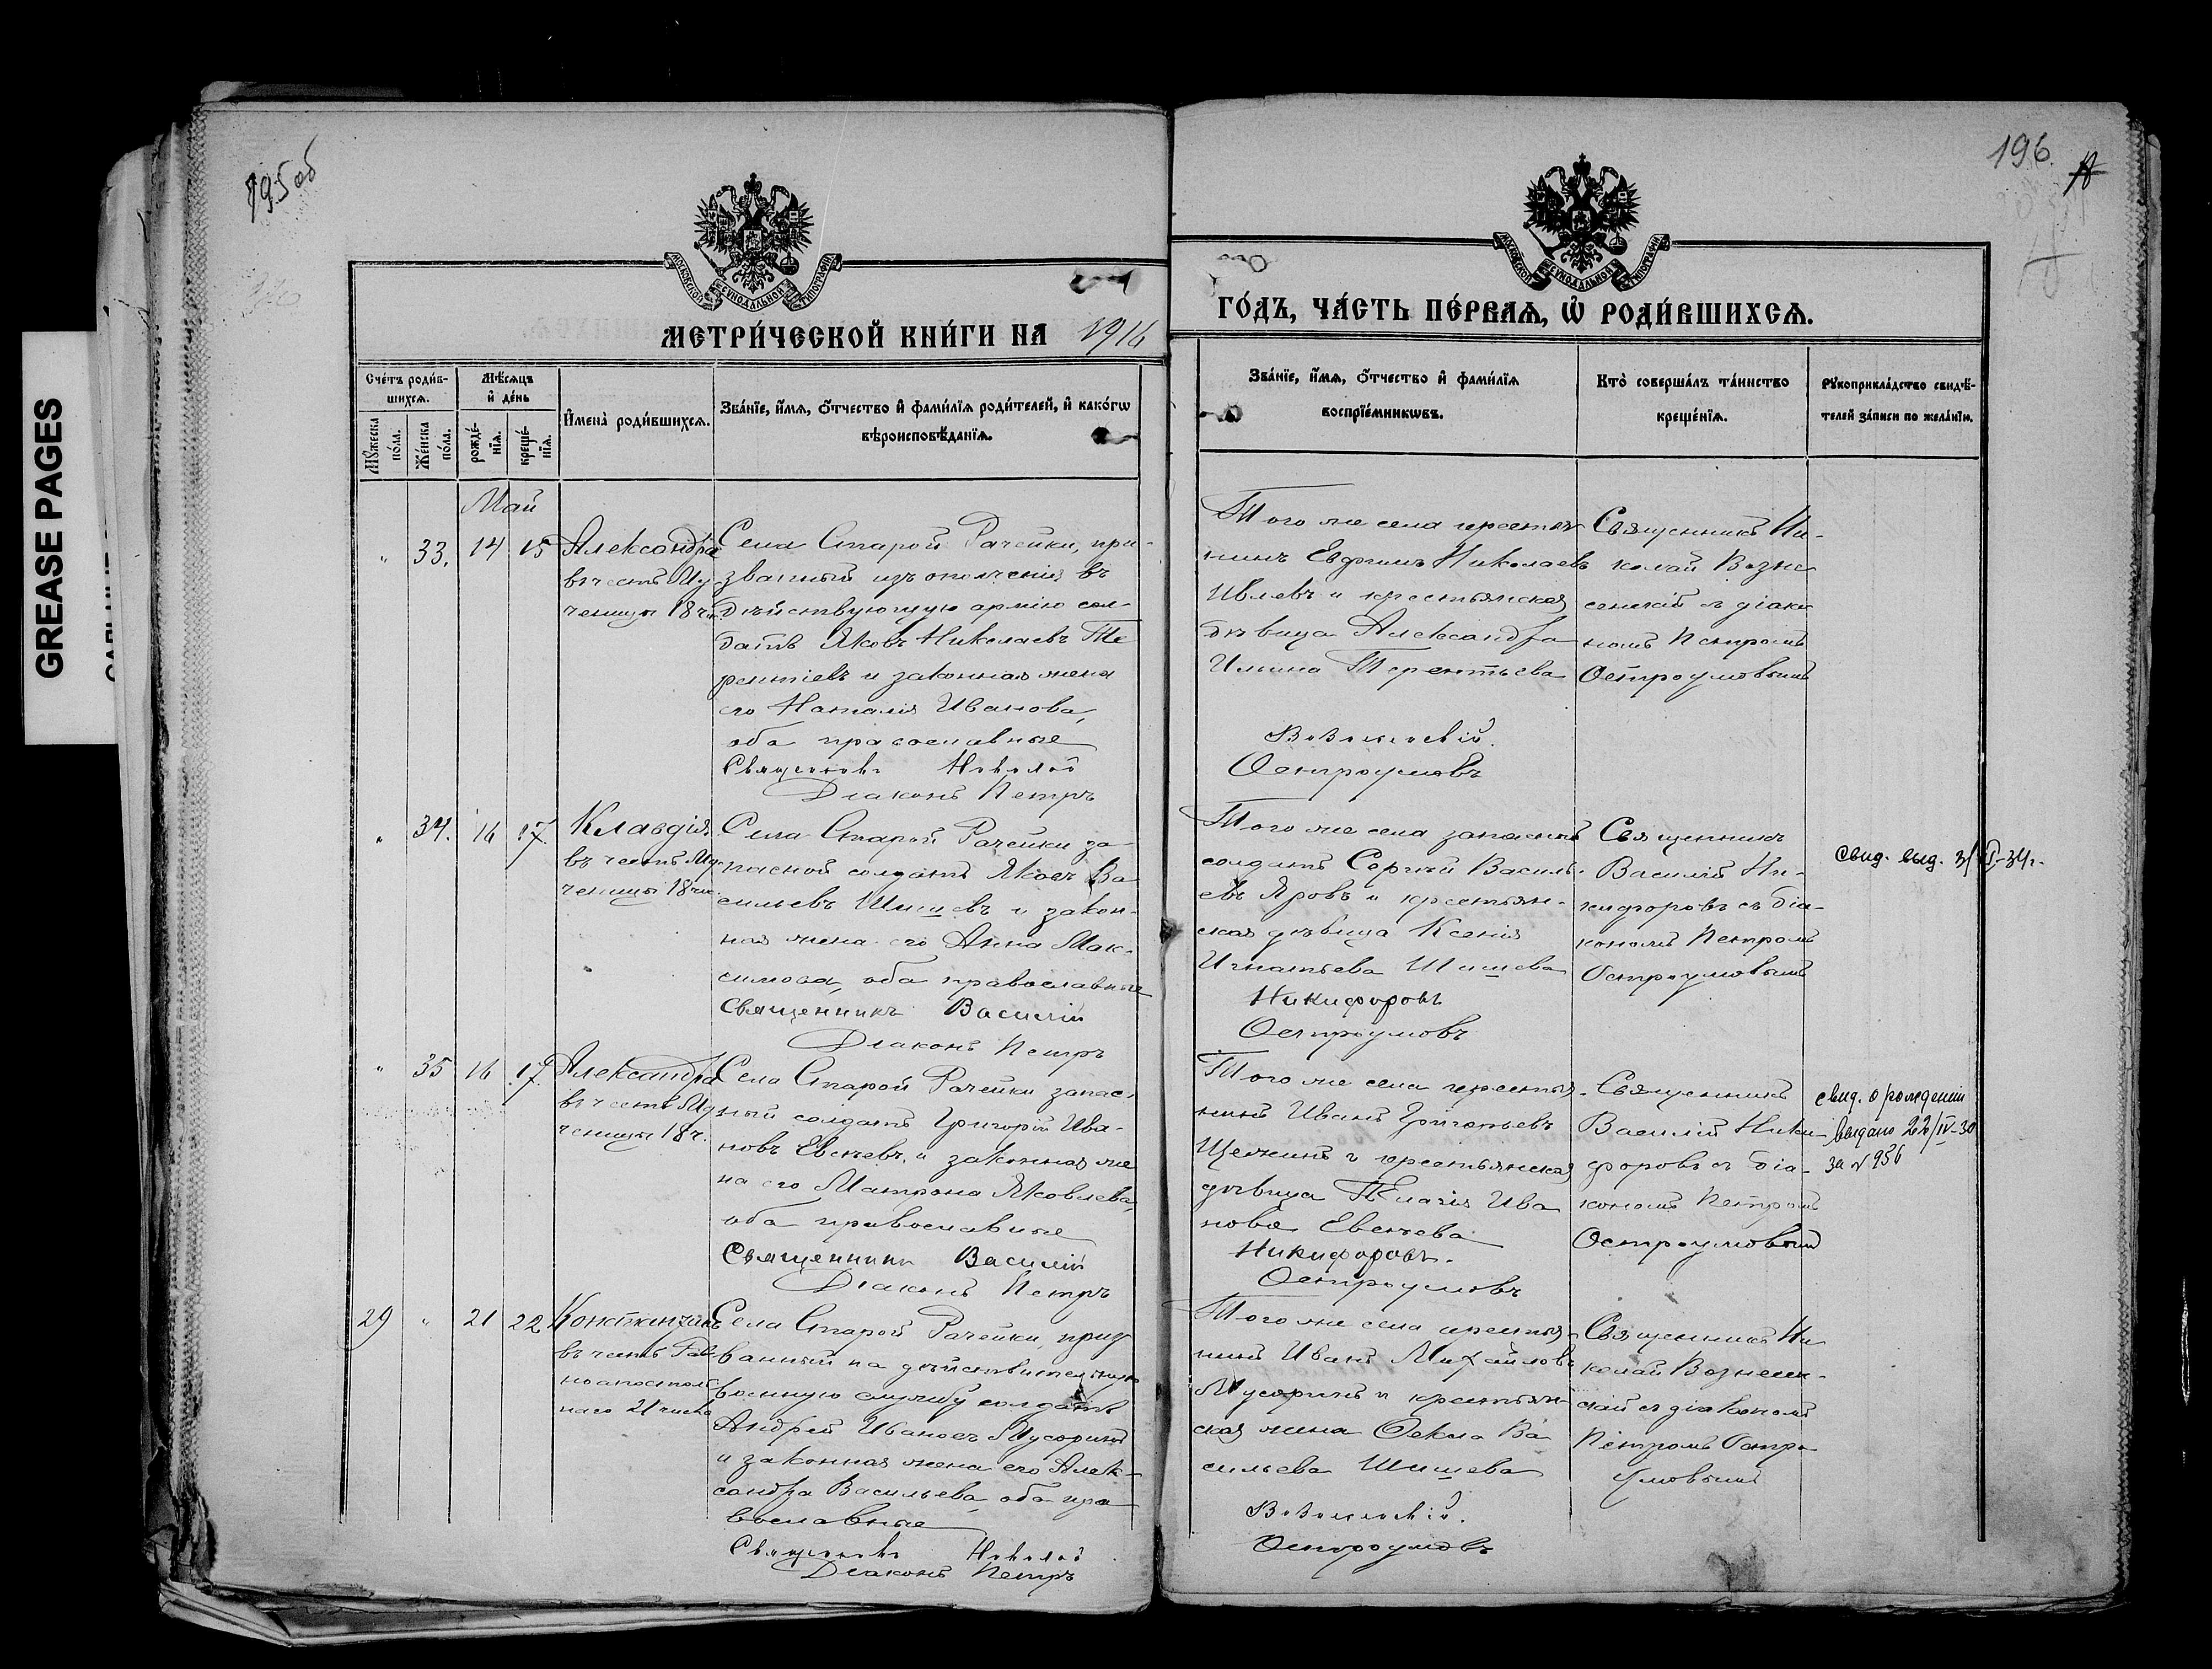 GREASE PAGES
195об
196.
МОСКОВСКОЙ СѴНОДАЛЬНОЙ ТИПОГРАФІИ
МОСКОВСКОЙ СѴНОДАЛЬНОЙ ТИПОГРАФІИ
МЕТРИ́ЧЕСКОЙ КНИ́ГИ НА 1916
ГО́ДЪ, ЧА́СТЬ ПЕ́РВАѦ, Ѽ РОДИ́ВШИХСѦ.
Сче́тъ роди́в-
шихсѧ.
Мꙋ́жеска
по́ла.
Же́нска
по́ла.
Мѣ́сѧцъ
и҆ де́нь
рожде́-
нїѧ.
креще́-
нїѧ.
И҆мена̀ роди́вшихсѧ.
Зва́нїе, и҆́мѧ, ѻ҆́тчество и҆ фами́лїѧ роди́телей, и҆ како́гѡ
вѣроисповѣ́данїѧ.
Зва́нїе, и҆́мѧ, ѻ҆́тчество и҆ фами́лїѧ
воспрїе́мникѡвъ.
Кто̀ соверша́лъ та́инство
креще́нїѧ.
Рꙋкоприкла́дство свидѣ́-
телей за́писи по жела́нїю.
Май
" 33. 14 15
Александра
въ честь Му
ченицы 18 ч.
Села Старой Рачейки, при-
званный изъ ополченія въ
дѣйствующую армію сол-
датъ Яковъ Николаевъ Те
рентіевъ и законная жена
его Наталія Иванова,
оба православные
Священникъ Николай
Діаконъ Петръ
Того же села крестья
нинъ Евфимъ Николаевъ
Ивлевъ и крестьянская
дѣвица Александра
Ильина Терентьева
Вознесенскій.
Остроумовъ
Священникъ Ни-
колай Возне
сенскій съ діако
номъ Петромъ
Остроумовымъ
" 34. 16 17.
Клавдія
въ честь Му-
ченицы 18 чис.
Села Старой Рачейки за-
пасной солдатъ Яковъ Ва
сильевъ Шишевъ и закон-
ная жена его Анна Мак-
симова, оба православные
Священникъ Василій
Діаконъ Петръ
Того же села запасный
солдатъ Сергѣй Василь-
евъ Яровъ и крестьян-
ская дѣвица Ксенія
Игнатьева Шишева
Никифоровъ
Остроумовъ
Священникъ
Василій Ни-
кифоровъ съ діа-
кономъ Петромъ
Остроумовымъ
Свид. выд.
" 35 16 17.
Александра
въ честь Му
ченицы 18 ч.
Села Старой Рачейки запас-
ный солдатъ Григорій Ива-
новъ Евсѣевъ и законная же
на его Матрона Яковлева,
оба православные
Священникъ Василій
Діаконъ Петръ
Того же села крестья-
нинъ Иванъ Григорьевъ
и крестьянская
дѣвица Пелагія Ива
нова Евсѣева
Никифоровъ.
Остроумовъ
Священникъ
Василій Ники
форовъ съ діа-
кономъ Петромъ
Остроумовымъ
свид. о рождении
выдано 22/IV-30
за № 956
29 " 21 22
Константинъ
въ честь Рав
ноапостоль
наго 21 числа
Села Старой Рачейки, приз
ванный на дѣйствительную
военную службу солдатъ
Андрей Ивановъ Мусоринъ
и законная жена его Алек-
сандра Васильева, оба пра
вославные
Священникъ Николай
Діаконъ Петръ
Того же села крестья-
нинъ Иванъ Михайловъ
Мусоринъ и крестьян-
ская жена Ѳекла Ва
сильева Шишева
Вознесенскій.
Остроумовъ
Священникъ Ни
колай Вознесен-
скій съ діакономъ
Петромъ Остро
умовымъ